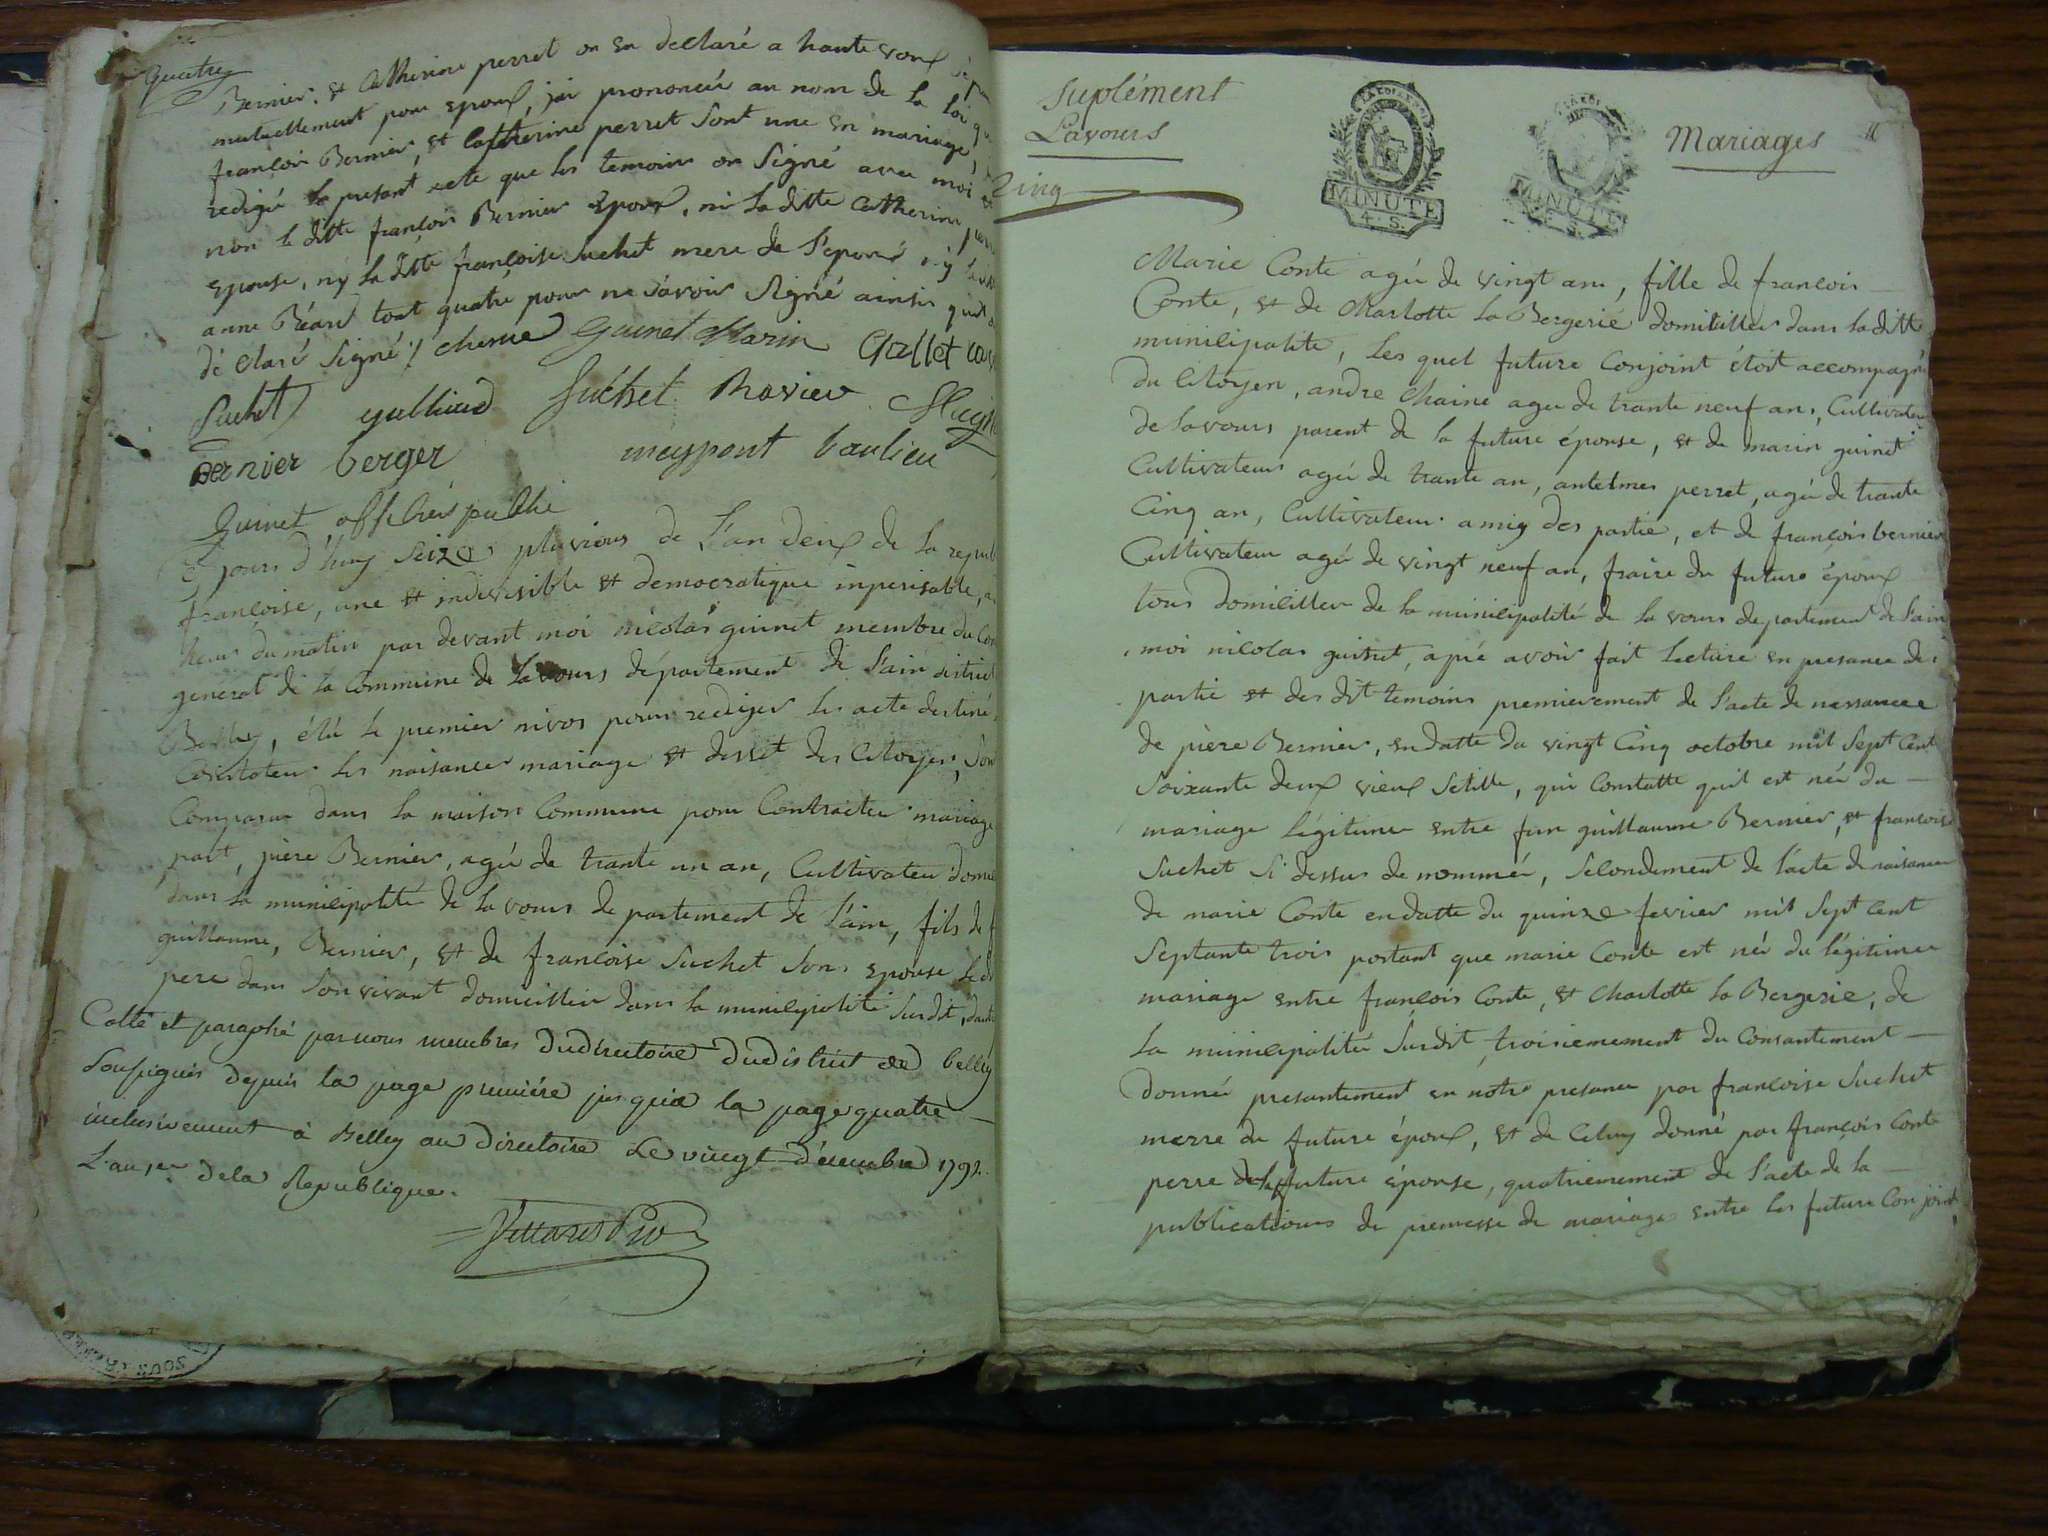 quatre
Bernier, et Catherine perret on en declaré a haute voix
mutuellement pour epoux, jai prononcée au nom de la loi
françois Bernier, et Catherine perret sont unie en mariage,
redigée le presant acte que les temoins on signé avec moi
non le ditte françois Bernier epoux, ni la ditte Catherine
epouse, ny la ditte francoise Suchet mere de l'epoux ny
anne Béard tout quatre pour ne savoir signé ainsin
dé claré signé / Guinet Marin Gallet
Suchet Suchet Ravier
Bernier berger beaulieu
Guinet officier public
jours d'huy seize pluvious de l'an deux de la
françoise, une et indivisible et democratique inperisable,
heur du matin par devant moi nicolas guinet membre du
generat de la Commune de Lavours département de l'ain
Belley, élû le premier nivos pour rediger les acte destiné
les naisance mariage et desset des Citoyens,
Comparue dans la maison Commune pour Contracter mariage
part, pière Bernier, agée de trante un an, Cultivateur
dans la municipalité de la vours de partement de l'ain, fils de
guillaume, Bernier, et de francoise Suchet sons epouse
pere dans son vivant domicillier dans la municipalité surdit,
Cotté et paraphé par nous membres du directoire du district de belley
Soussignés depuis la page première jusqu'a la page quatre
inclusivement à Belley au directoire le vingt décembre 1792.
L'an 1er de la Republique.
Suplément
Lavours
Mariages
Cinq
LA LOI
MINUTE
4. S.
MINUTE
Marie Conte agée de vingt ans, fille de francois
Conte, et de Charlotte la Bergerie domicillier dans la ditte
municipalite, les quel future Conjoint étoit accompagné
du Citoyen, andre Chaine agee de trante neuf ans, Cultivateur
de lavours parent de la future épouse, et de marin guinet
Cultivateur agée de trante an, antelmes perret, agée de trante
Cinq an, Cultivateur amig des partie, et de françois bernier
Cultivateur agée de vingt neuf an, fraire du future époux
tous domicillier de la municipalité de la vours departement de l'ain
moi nicolas guinet, aprè avoir fait lecture en presance des
partie et des dit temoins premierement de l'acte de nessancee
de pière Bernier, en datte du vingt Cinq octobre mil sept Cent
soixante deux vieux stille, qui Constatte quil est née du
mariage légitime entre feu guillaume Bernier, et francoise
Suchet si dessus de nommée, secondement de l'acte de naisance
de marie Conte en datte du quinze fevrier mil sept Cent
septante trois portant que marie Conte est née du légitime
mariage entre françois Conte, et Charlotte la Bergerie, de
la municipalitée surdit, troisiemement du Consantement
donnée presantement en notre presance par francoise Suchet
merre du future époux, et de Celuy donné par françois Conte
perre de la future épouse, quatriemement de l'acte de la
publications de premesse de mariage entre les future Conjoint,